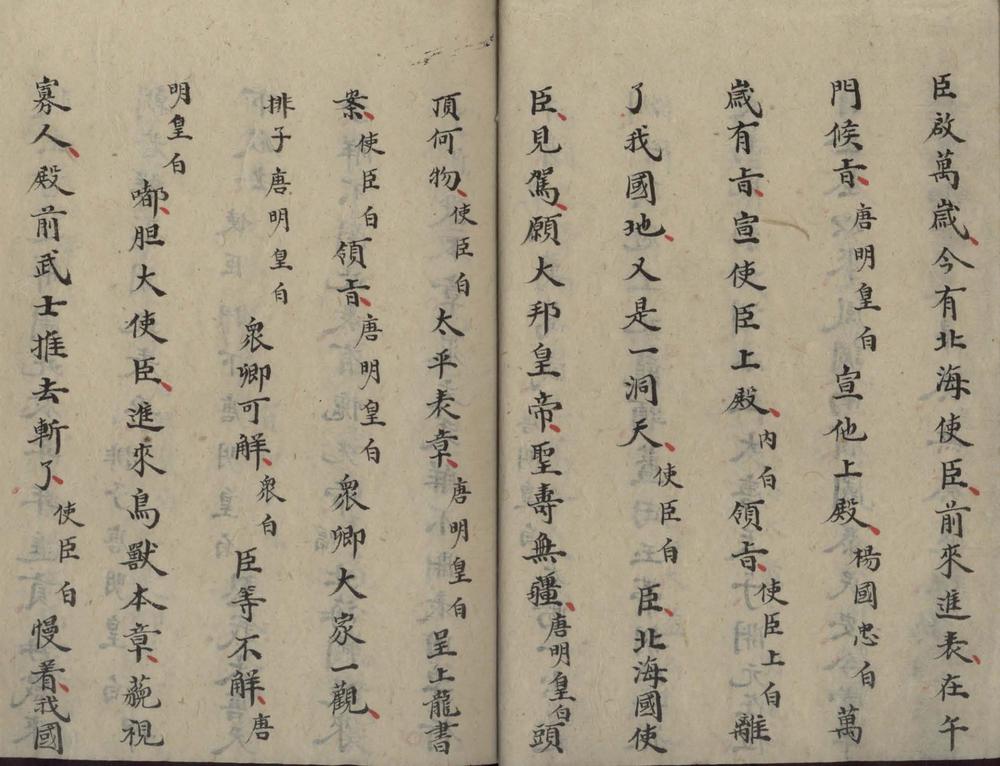 臣啟萬歲今有北海使臣前來進表在午
門候旨唐明皇白宣他上殿楊國忠白萬
歲有旨宣使臣上殿內白領旨使臣上白離
了我國地又是一洞天使臣白臣北海國使
臣見駕願大邦皇帝聖壽無疆唐明皇白頭
頂何物使臣白太平表章唐明皇白呈上龍書
案使臣白領旨唐明皇白眾卿大家一觀
排子唐明皇白眾卿可解眾白臣等不解唐
明皇白嘟胆大使臣進來鳥獸本章藐視
寡人殿前武士推去斬了使臣白慢着我國